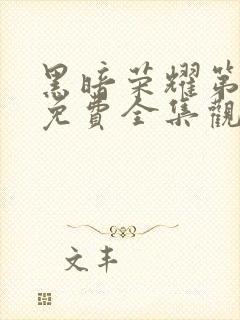 黑暗荣耀第
免費全集觀
文丰